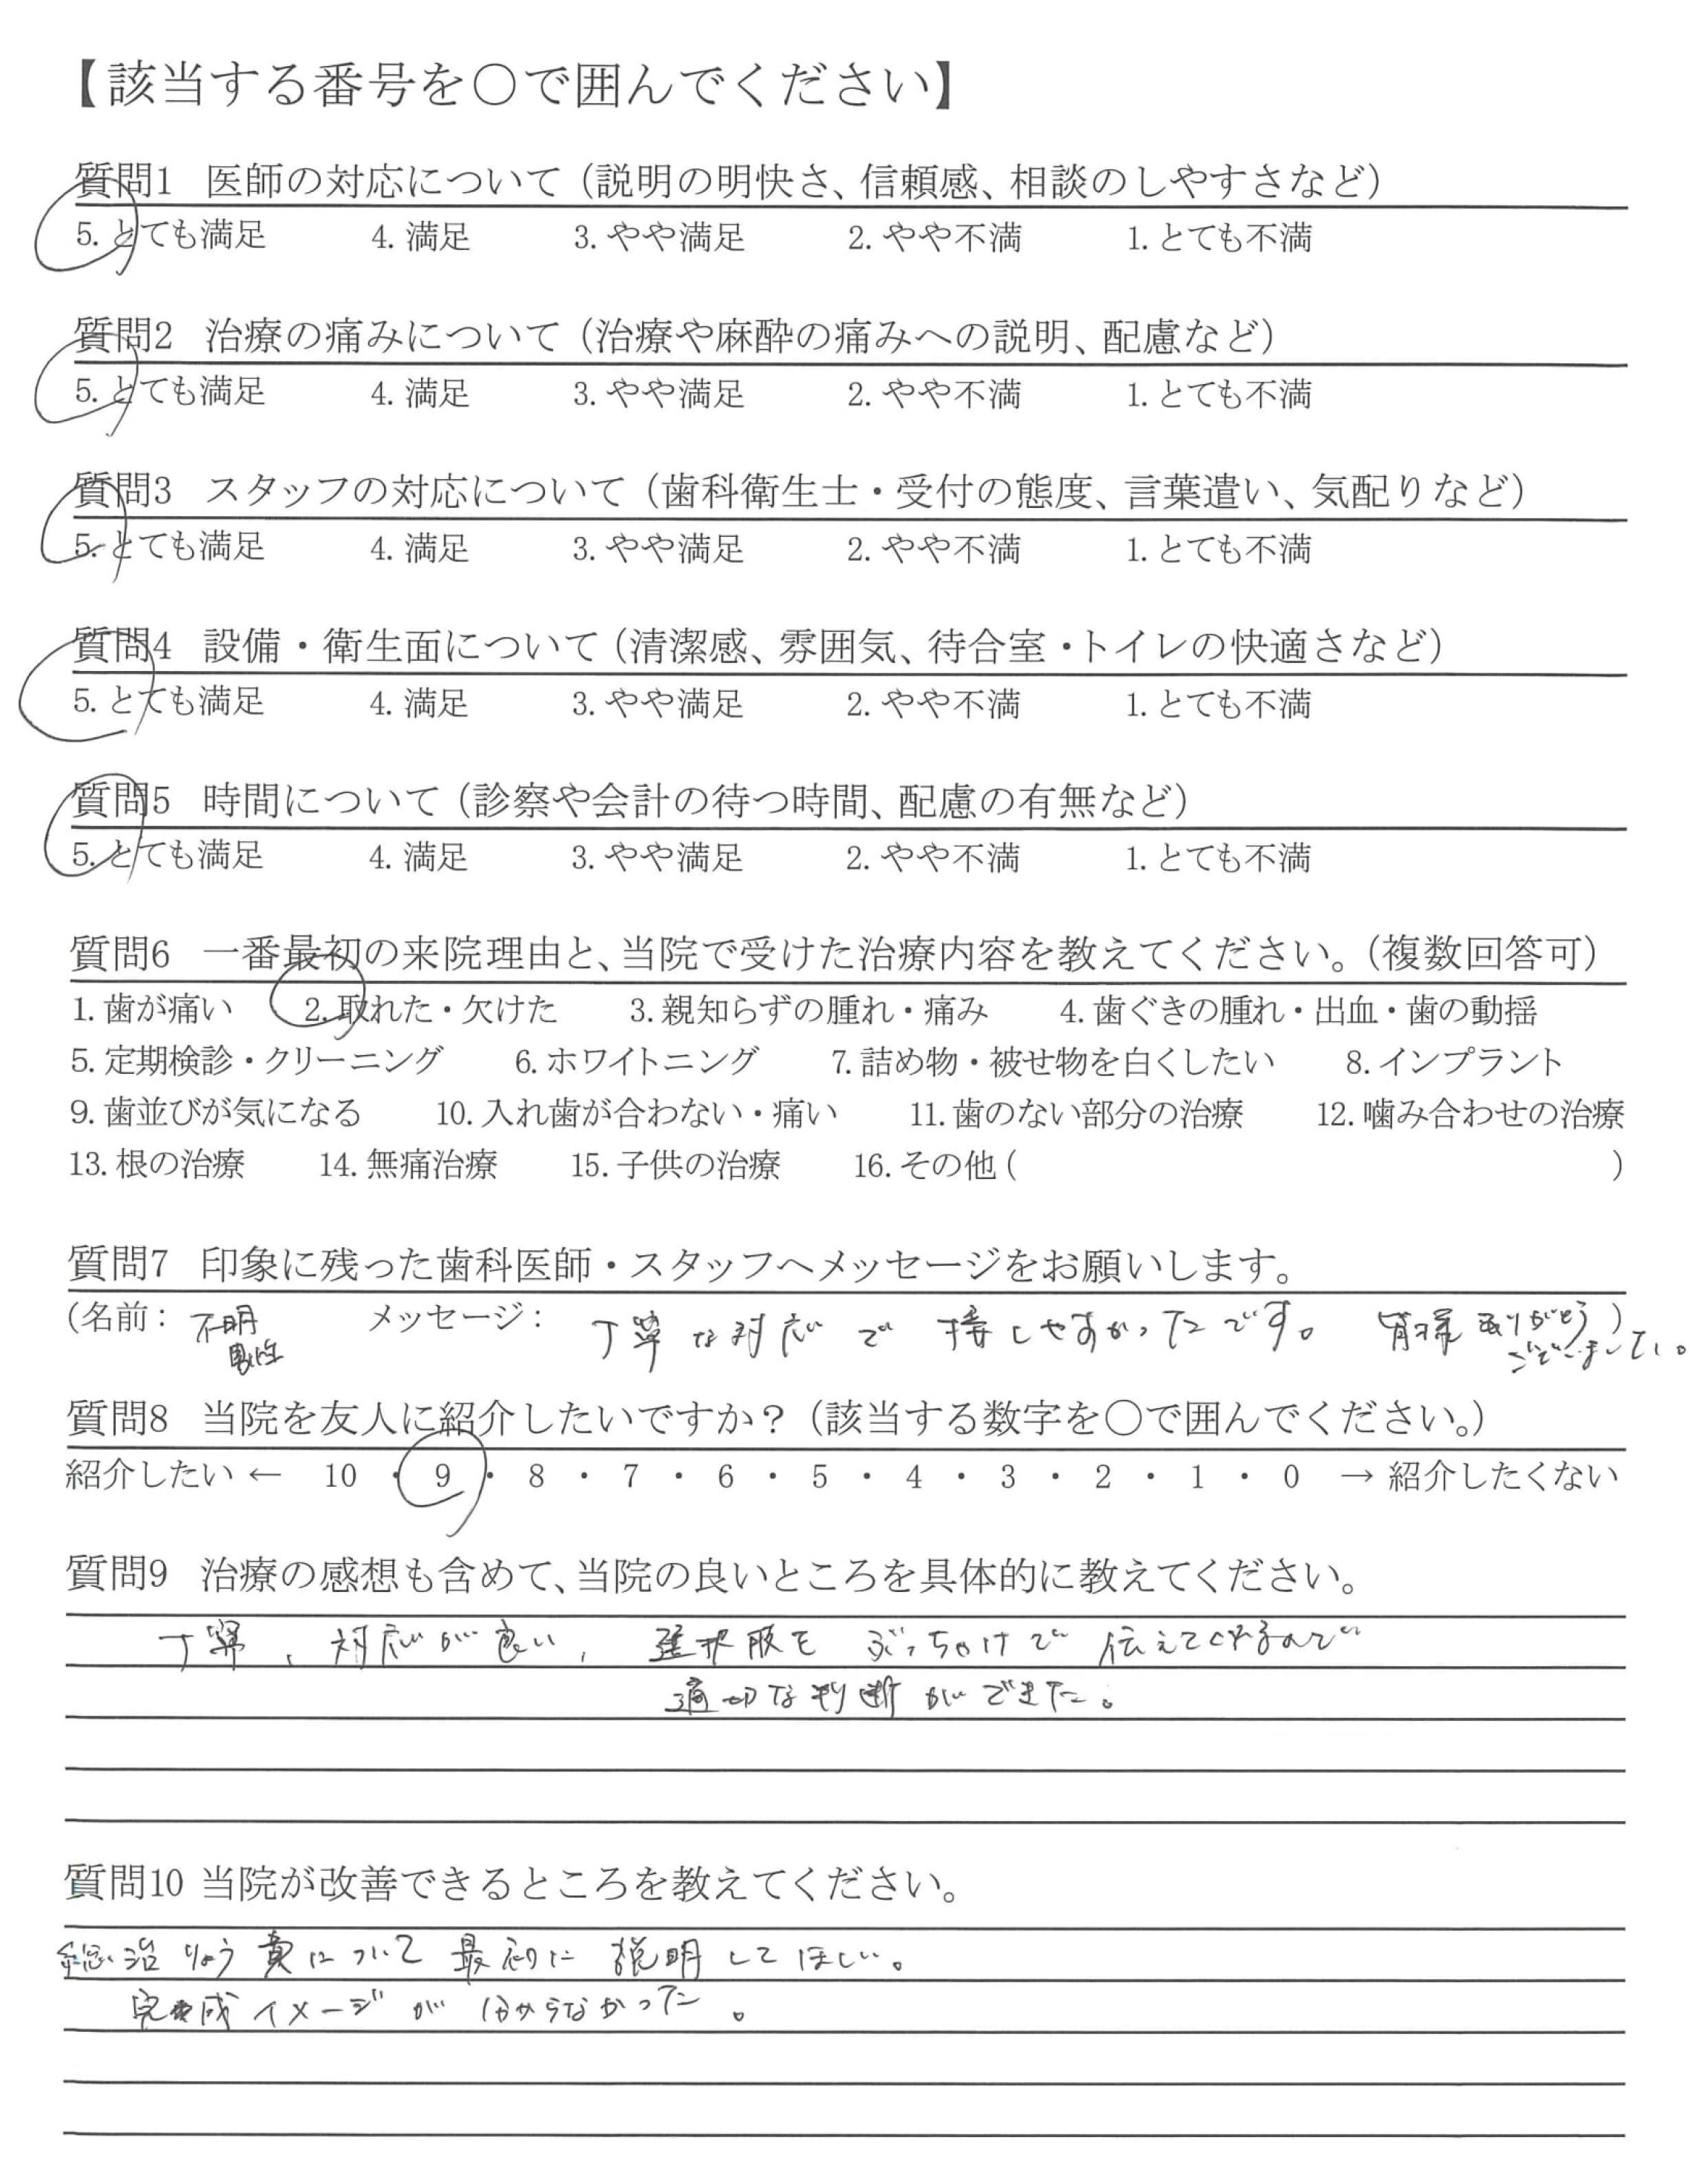 【該当する番号を〇で囲んでください】
質問1 医師の対応について（説明の明快さ、信頼感、相談のしやすさなど）
5. とても満足 4. 満足 3. やや満足 2. やや不満 1. とても不満
質問2 治療の痛みについて（治療や麻酔の痛みへの説明、配慮など）
5. とても満足 4. 満足 3. やや満足 2. やや不満 1. とても不満
質問3 スタッフの対応について（歯科衛生士・受付の態度、言葉遣い、気配りなど）
5. とても満足 4. 満足 3. やや満足 2. やや不満 1. とても不満
質問4 設備・衛生面について（清潔感、雰囲気、待合室・トイレの快適さなど）
5. とても満足 4. 満足 3. やや満足 2. やや不満 1. とても不満
質問5 時間について（診察や会計の待つ時間、配慮の有無など）
5. とても満足 4. 満足 3. やや満足 2. やや不満 1. とても不満
質問6 一番最初の来院理由と、当院で受けた治療内容を教えてください。（複数回答可）
1. 歯が痛い 2. 取れた・欠けた 3. 親知らずの腫れ・痛み 4. 歯ぐきの腫れ・出血・歯の動揺
5. 定期検診・クリーニング 6. ホワイトニング 7. 詰め物・被せ物を白くしたい 8. インプラント
9. 歯並びが気になる 10. 入れ歯が合わない・痛い 11. 歯のない部分の治療 12. 噛み合わせの治療
13. 根の治療 14. 無痛治療 15. 子供の治療 16. その他（ ）
質問7 印象に残った歯科医師・スタッフへメッセージをお願いします。
（名前： 不明 メッセージ： 丁寧な対応で接しやすかったです。 皆様ありがとう）
男性 ございました。
質問8 当院を友人に紹介したいですか？（該当する数字を〇で囲んでください。）
紹介したい ← 10 ・ 9 ・ 8 ・ 7 ・ 6 ・ 5 ・ 4 ・ 3 ・ 2 ・ 1 ・ 0 → 紹介したくない
質問9 治療の感想も含めて、当院の良いところを具体的に教えてください。
丁寧、対応が良い、選択肢をぶっちゃけで伝えてくれるので
適切な判断ができた。
質問10 当院が改善できるところを教えてください。
総治りょう費について最初に説明してほしい。
完成イメージが分からなかった。